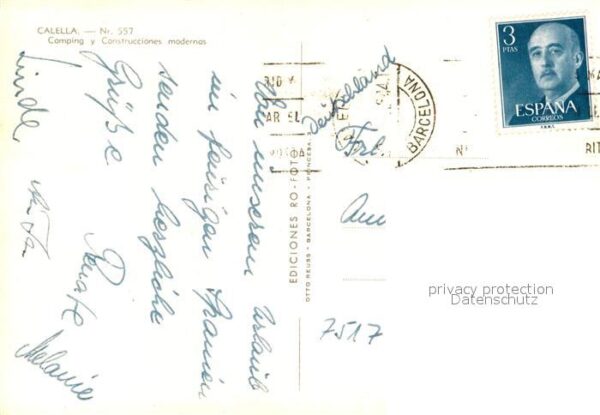 CALELLA. — Nr. 557
Camping y Construcciones modernas
Von unserem Urlaub
im feurigen Spanien
senden herzliche
Grüße
Renate
Melanie
EDICIONES RO-FOTO
OTTO REUSS - BARCELONA - PRINCESA
Deutschland
Frl.
7517
BARCELONA
3
PTAS
ESPAÑA
CORREOS
privacy protection
Datenschutz